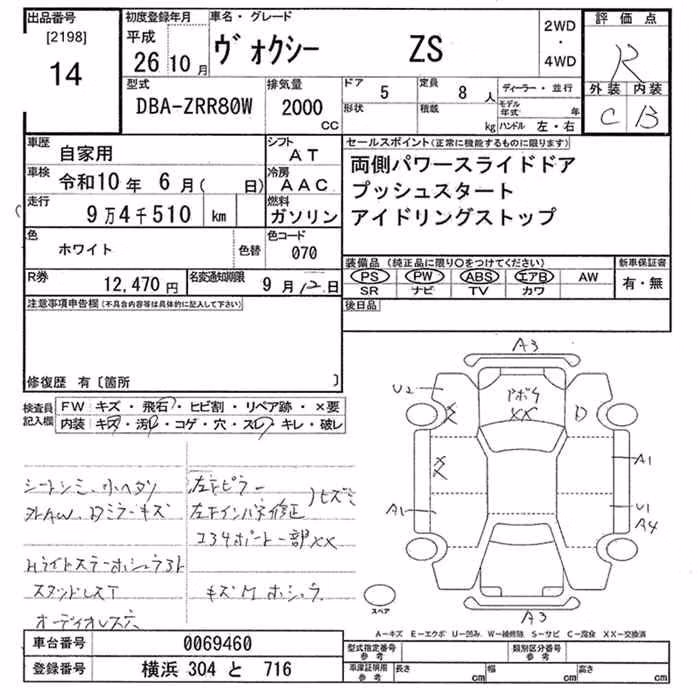 出品番号 初度登録年月 車名・グレード 2WD 評価点
[2198] 平成 ヴォクシー ZS ・ R
14 26 10月 4WD 外装 内装
型式 排気量 ドア 5 定員 8人 ディーラー・並行 C B
DBA-ZRR80W 2000 CC 形状 積載 kg モデル年式 年 ハンドル 左・右
車歴 自家用 シフト AT セールスポイント(正常に機能するものに限ります)
車検 令和10年 6月( 日) 冷房 AAC 両側パワースライドドア
走行 9万4千510 km 燃料 ガソリン プッシュスタート
アイドリングストップ
色 ホワイト 色替 色コード 070
装備品(純正品に限り○をつけてください) 新車保証書
R券 12,470円 名変通知期限 9月12日 PS PW ABS エアB AW 有・無
SR ナビ TV カワ
注意事項申告欄(不具合内容等は具体的に記入して下さい) 後日品
修復歴 有〔箇所 〕
検査員記入欄 FW キズ・飛石・ヒビ割・リペア跡・×要
内装 キズ・汚れ・コゲ・穴・スレ・キレ・破レ
シートシミ、小ヘタリ 左下ピラー
外AW、Dミラーキズ 左下インパネ修正 )ヒズミ
コアサポート一部XX
スタッドレスT
オーディオレス穴
A3
U2 XX D
A1 A1
U1
A4
A3
スペア
A―キズ E―エクボ U―凹み W―補修跡 S―サビ C―腐食 XX―交換済
車台番号 0069460 型式指定番号 参考 類別区分番号 参考
登録番号 横浜 304 と 716 車庫証明用 参考 長さ cm 幅 cm 高さ cm